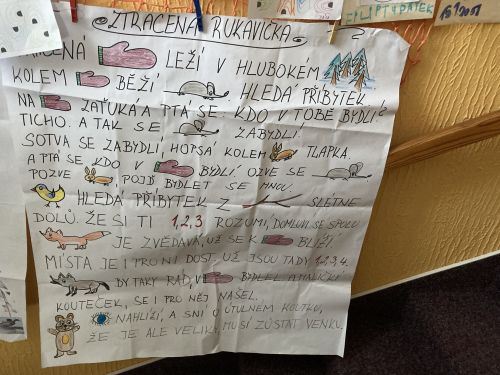 ZTRACENÁ RUKAVIČKA
LEŽÍ V HLUBOKÉM
KOLEM BĚŽÍ HLEDÁ PŘÍBYTEK.
NA ZAŤUKÁ A PTÁ SE: KDO V TOBĚ BYDLÍ?
TICHO. A TAK SE ZABYDLÍ.
SOTVA SE ZABYDLÍ, HOPSÁ KOLEM TLAPKA
A PTÁ SE, KDO V BYDLÍ. OZVE SE
POZVE, POJĎ BYDLET SE MNOU.
HLEDÁ PŘÍBYTEK Z SLÉTNE
DOLŮ. ŽE SI TI 1,2,3 ROZUMÍ, DOMLUVÍ SE SPOLU
JE ZVĚDAVÁ, UŽ SE K BLÍŽÍ.
MÍSTA JE I PRO NI DOST. UŽ JSOU TADY 1,2,3,4.
BY TAKY RÁD V BYDLEL A MALIČKÝ
KOUTEČEK, SE I PRO NĚJ NAŠEL.
NAHLÍŽÍ, A SNÍ O ÚTULNÉM KOUTKU,
ŽE JE ALE VELIKÝ, MUSÍ ZŮSTAT VENKU.